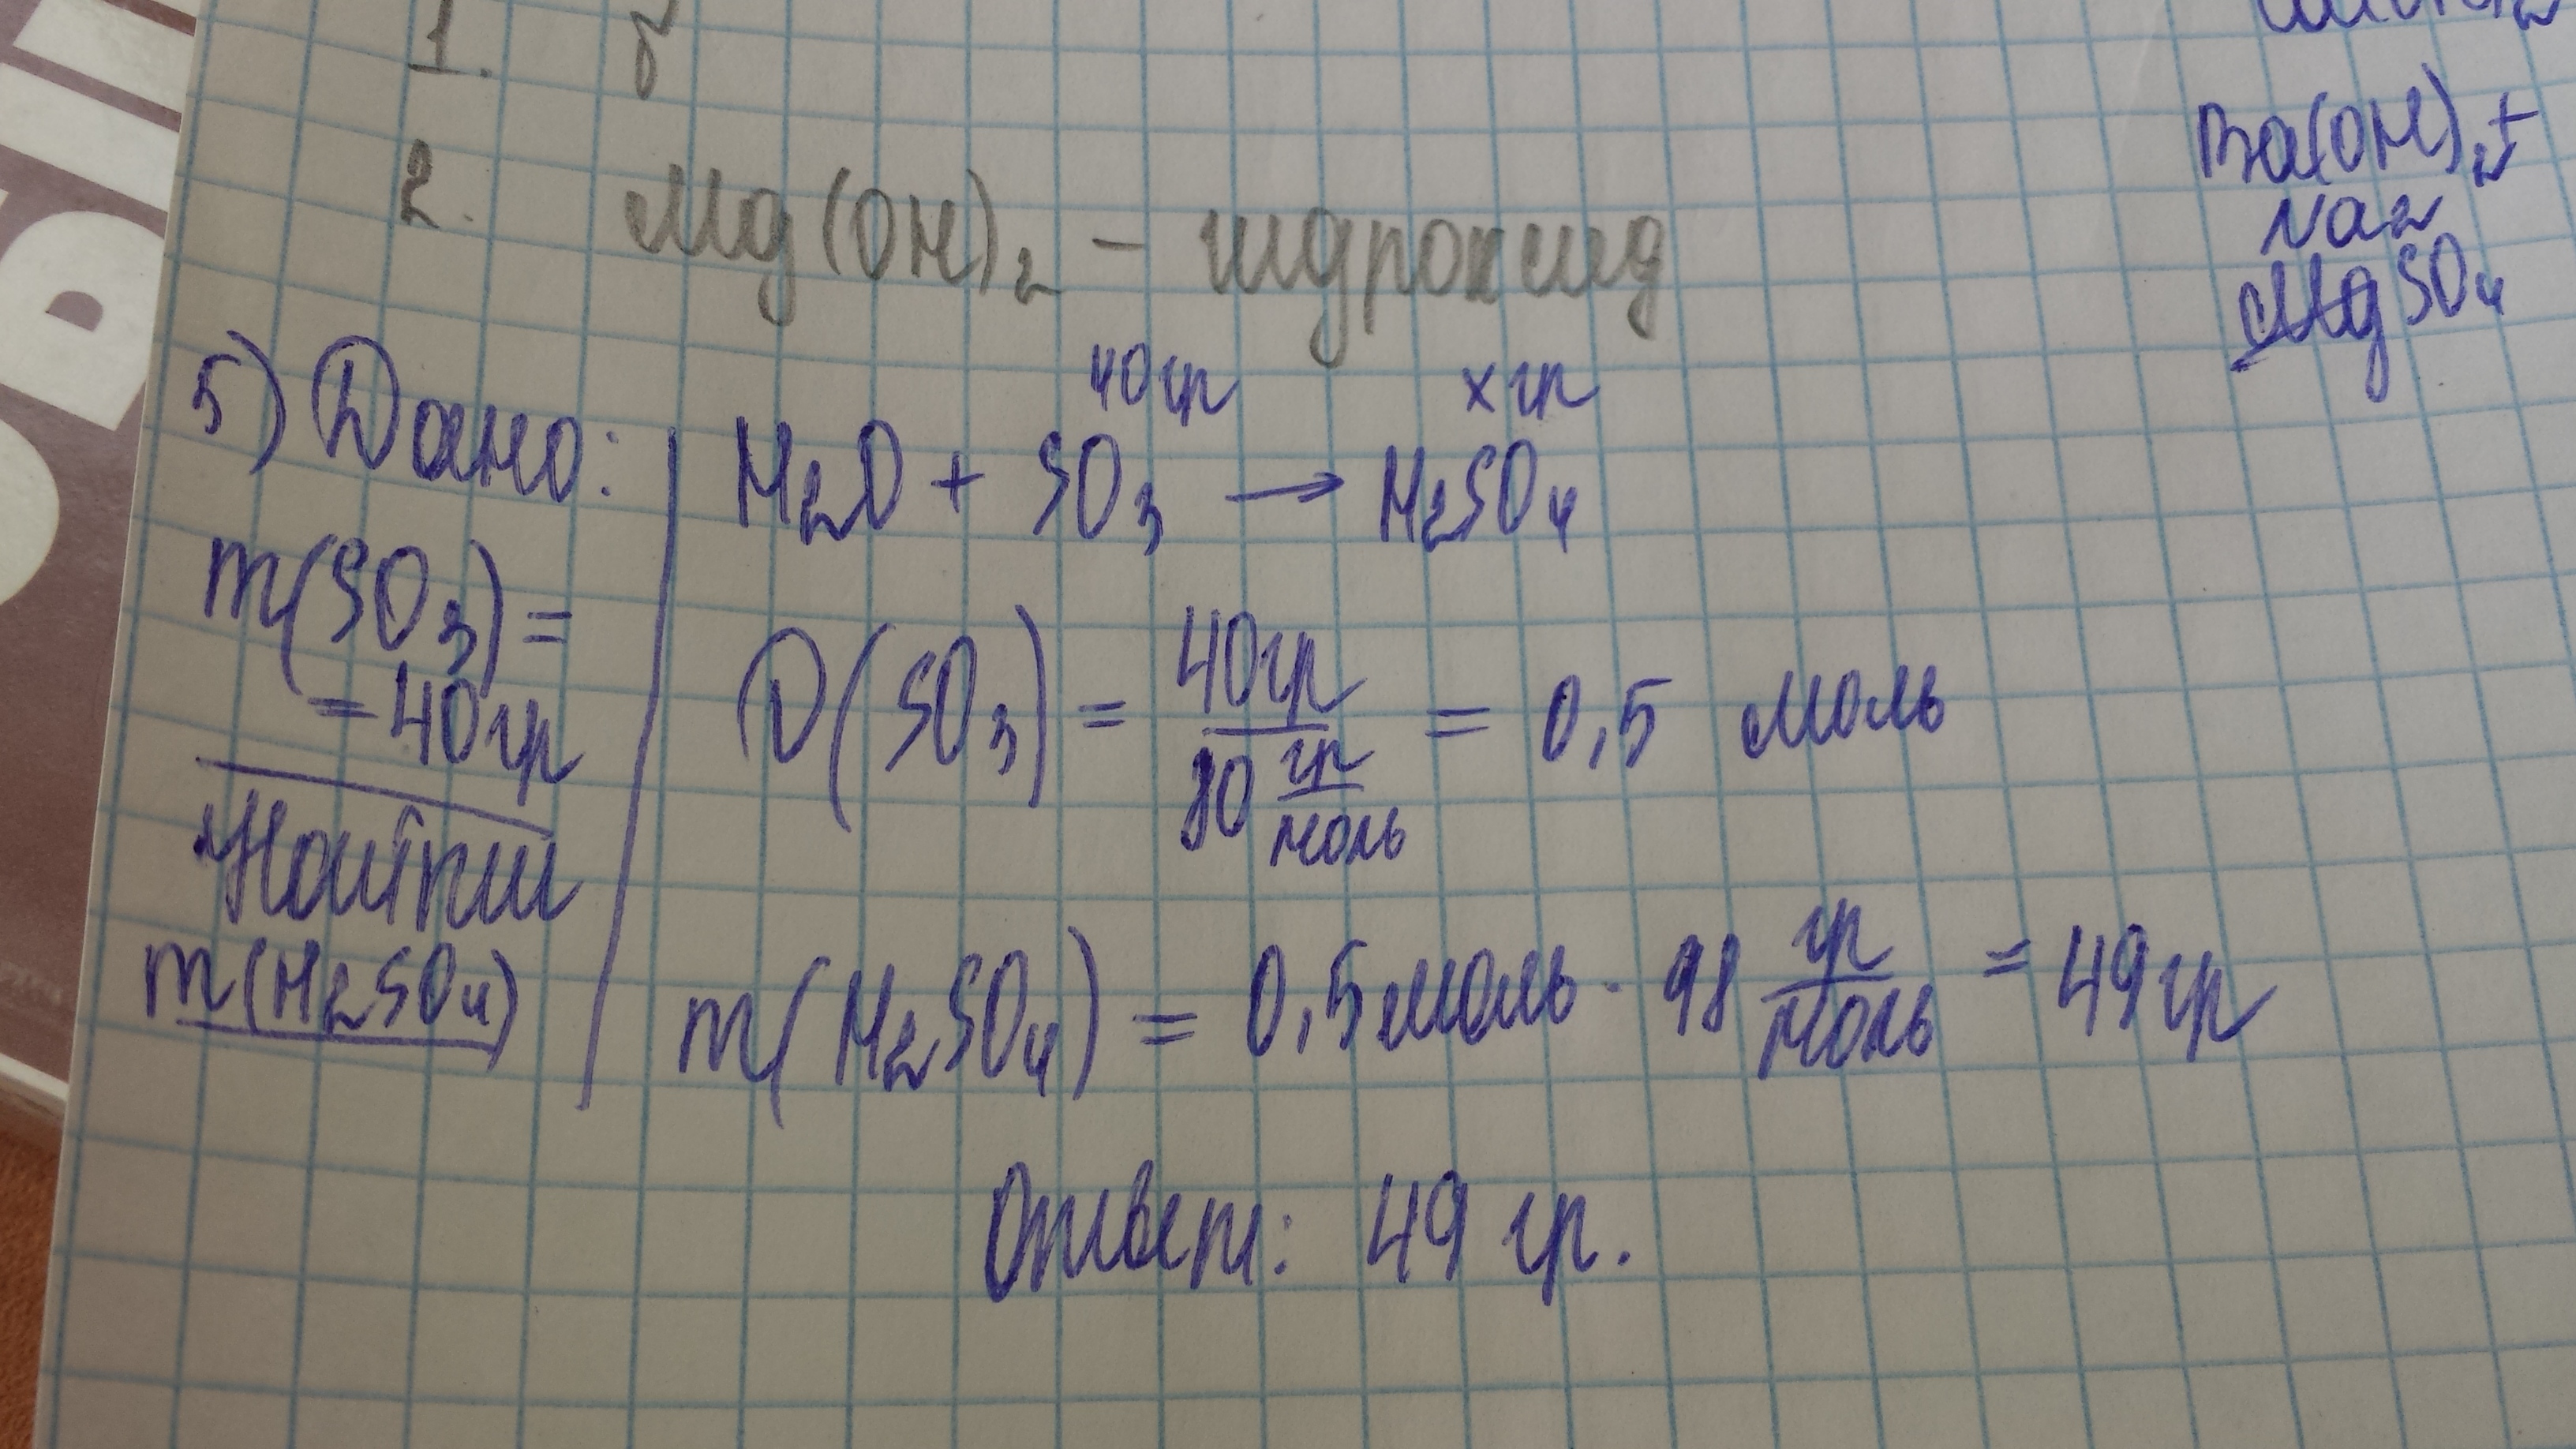 1. б
2. Mg(OH)₂ - гидроксид
Ba(OH)₂+
Na₂
MgSO₄
5) Дано:
m(SO₃) =
= 40гр
Найти
m(H₂SO₄)
40гр хгр
H₂O + SO₃ → H₂SO₄
ν(SO₃) = 40гр / 80 гр/моль = 0,5 моль
m(H₂SO₄) = 0,5 моль · 98 гр/моль = 49гр
Ответ: 49 гр.